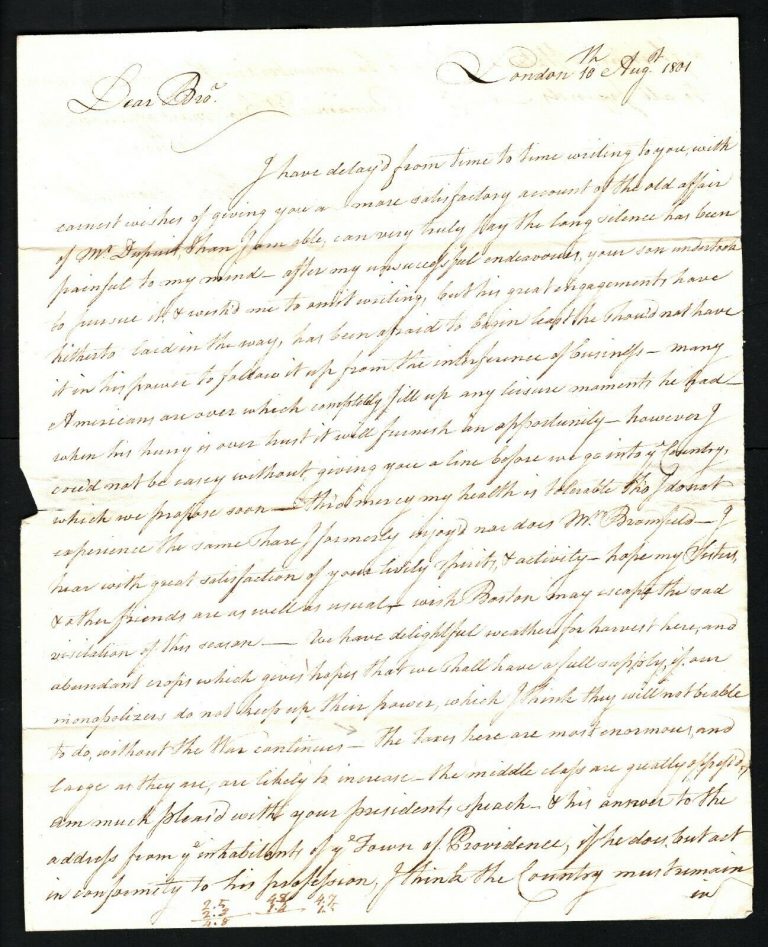 London 10th Augst 1801
Dear Bror.
I have delay'd from time to time writing to you, with
earnest wishes of giving you a more satisfactory account of the old affair
of Mr. Dupuis, than I am able, can very truly say the long silence has been
painful to my mind - after my unsuccessful endeavours, your son undertook
to pursue it & wish'd me to omit writing, but his great engagements have
hitherto laid in the way, has been afraid to begin least he shou'd not have
it in his power to follow it up from the interference of business - many
Americans are over which completely fill up any leisure moments he had -
when his hurry is over trust it will furnish an opportunity - however I
cou'd not be easey without giving you a line before we go into ye Country,
which we propose soon - thro' mercy my health is tolerable tho' I do not
experience the same share I formerly injoy'd nor does Mr. Bromfield - I
hear with great satisfaction of your lively spirits, & activity - hope my Sisters,
& other friends are as well as usual - wish Boston may escape the sad
visitation of this season - We have delightful weather for harvest here, and
abundant crops which gives hopes that we shall have a full supply, if our
monopolizers do not keep up their power, which I think they will not be able
to do, without the War continues - the taxes here are most enormous, and
large as they are, are likely to increase - the middle class are greatly oppress'd,
am much pleas'd with your presidents speach - & his answer to the
address from ye inhabitents of ye Town of Providence, if he does but act
in conformity to his profession, I think the Country must remain
in